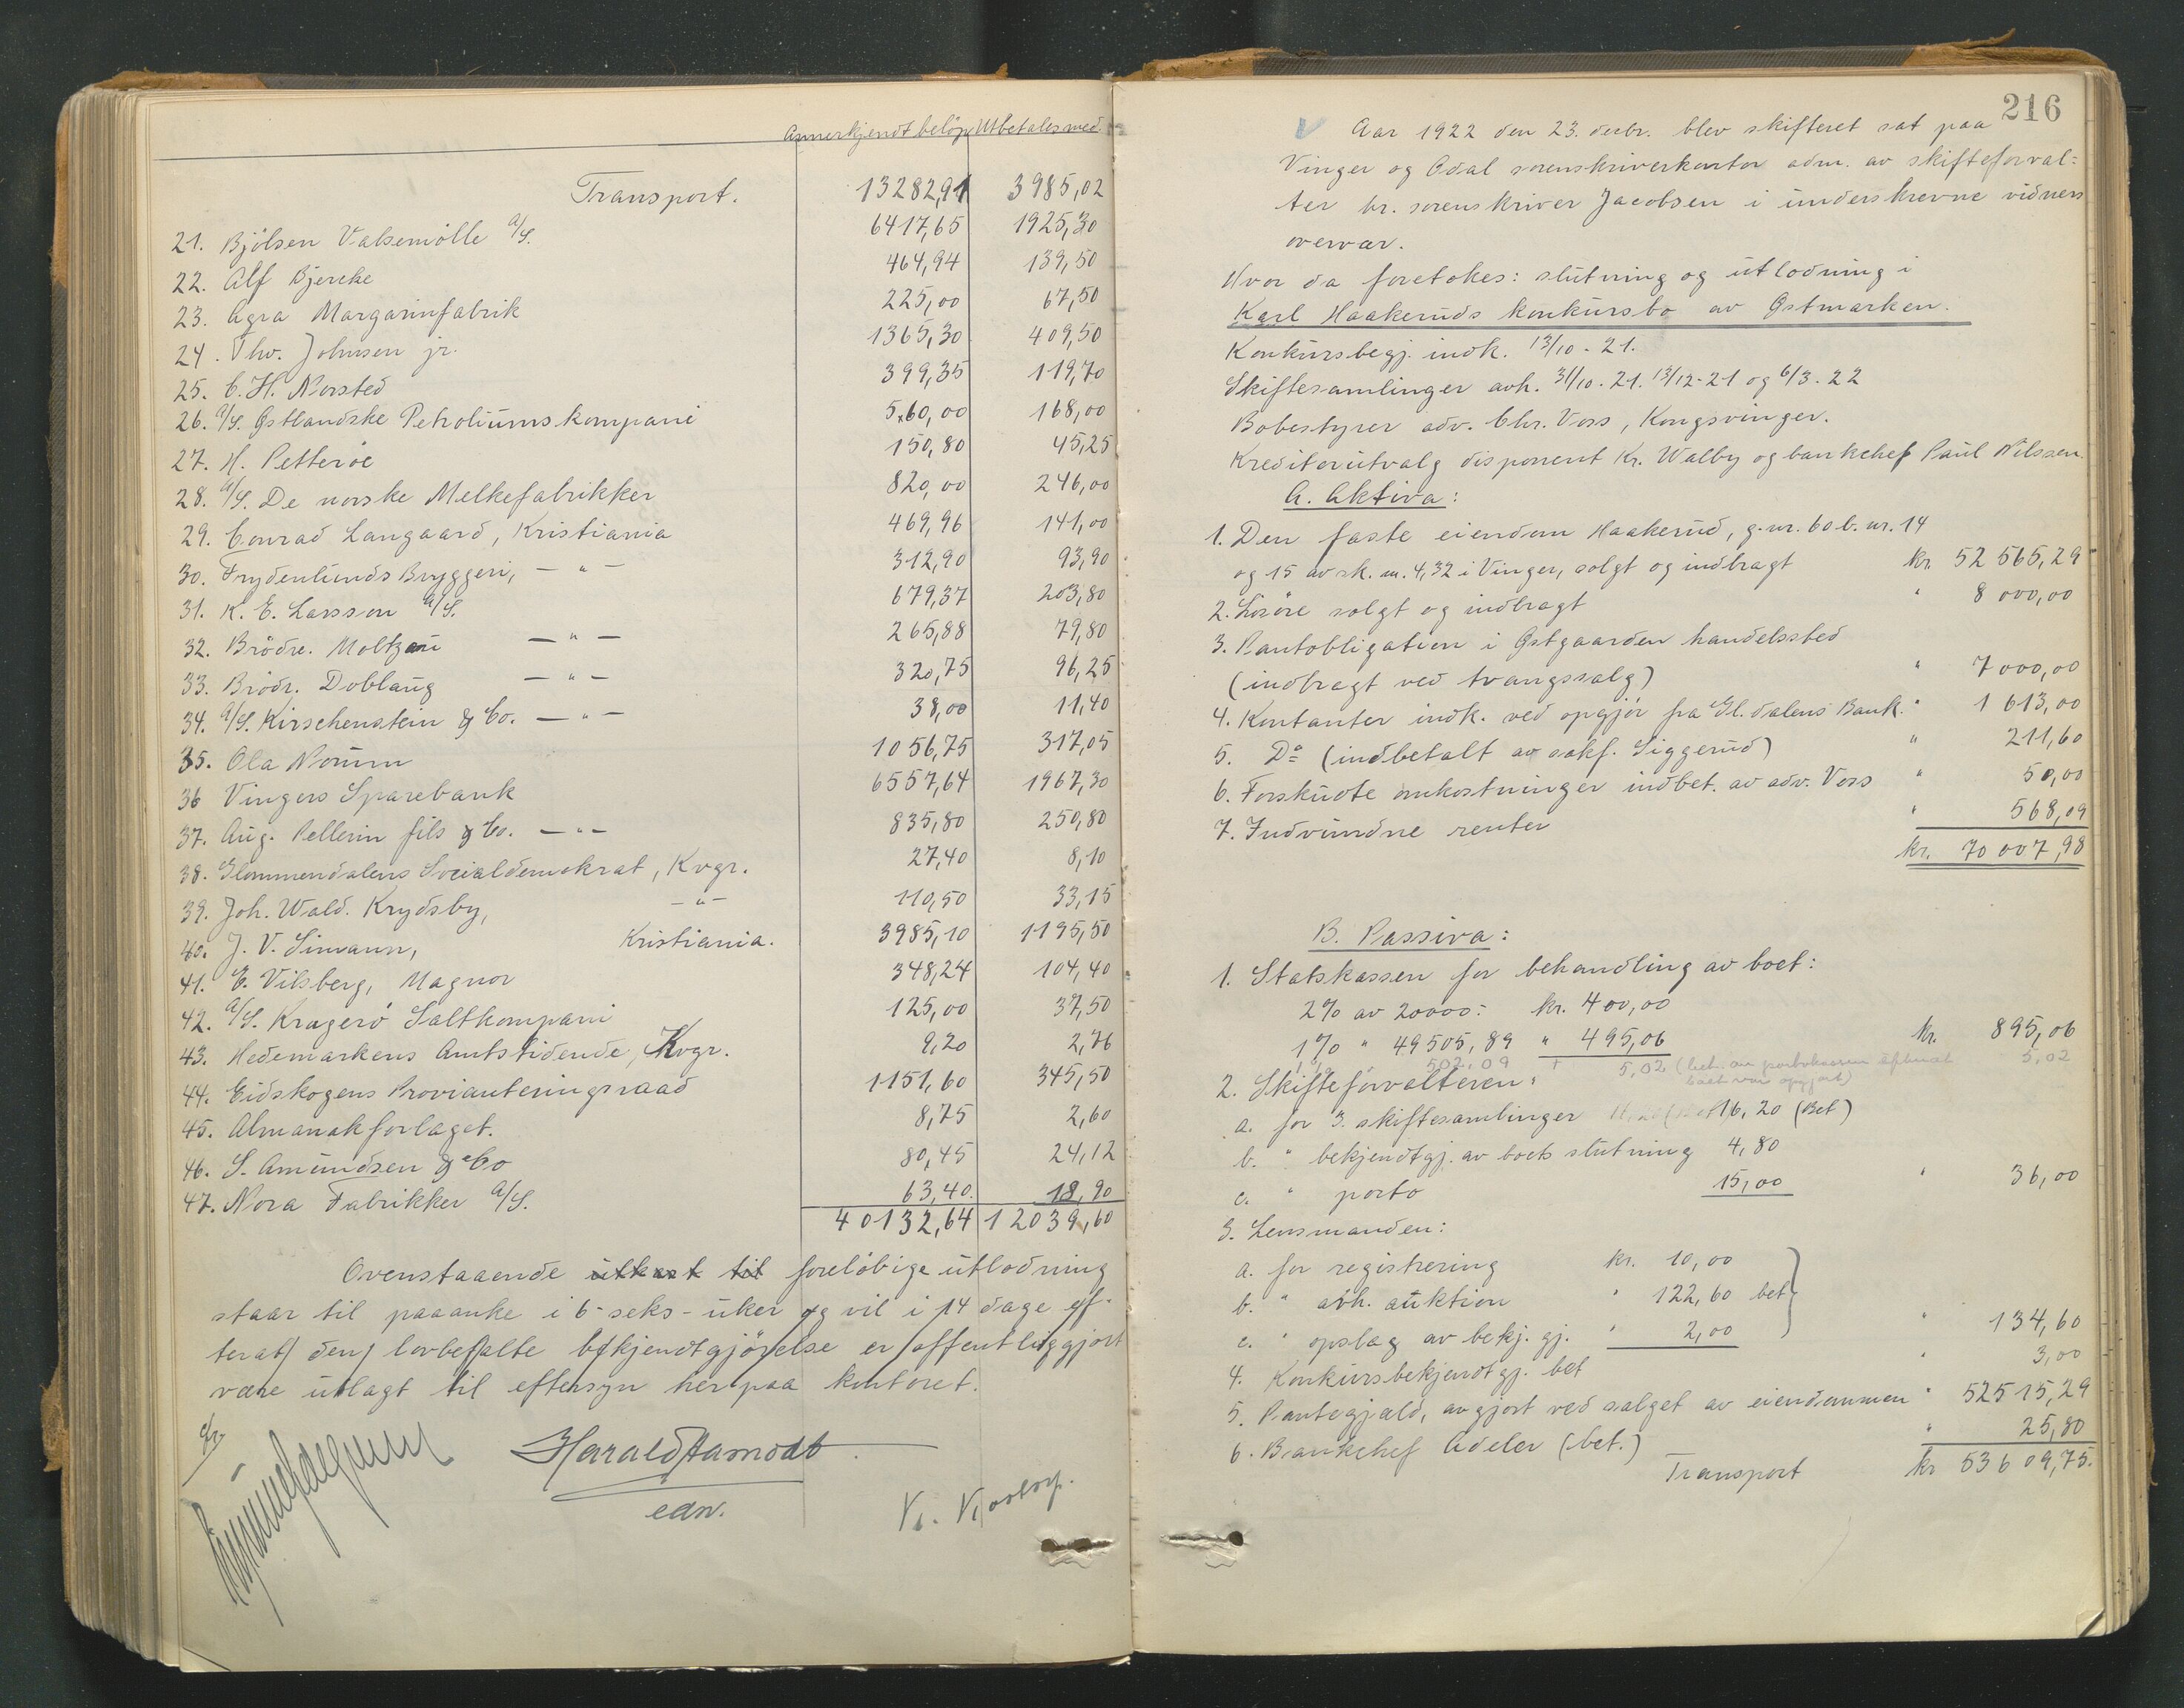 Annerkjendt beløp Utbetales med.
Transport. 13282,91 3985,02
21. Bjølsen Valsemølle A/S. 6417,65 1925,30
22. Alf Bjercke 464,94 139,50
23. Agra Margarinfabrik 225,00 67,50
24. Thv. Johnsen jr. 1365,30 409,50
25. C. H. Norsted 399,35 119,70
26. A/S. Østlandske Petroliumskompani 560,00 168,00
27. H. Petterøe 150,80 45,25
28. A/S. De norske Melkefabrikker 820,00 246,00
29. Conrad Langaard, Kristiania 469,96 141,00
30. Frydenlunds Bryggeri, — " — 312,90 93,90
31. K. E. Larsson A/S. 679,37 203,80
32. Brödre. Moltzau — " — 265,88 79,80
33. Brödr. Doblaug — " — 320,75 96,25
34. A/S. Kirschenstein & Co. — " — 38,00 11,40
35. Ola Norum 1056,75 317,05
36 Vingers Sparebank 6557,64 1967,30
37. Aug. Pellerin fils & Co. — " — 835,80 250,80
38. Glommendalens Socialdemokrat, Kvgr. 27,40 8,10
39. Joh. Wald. Krydsby, — " — 110,50 33,15
40. J. V. Simann, Kristiania. 3985,10 1195,50
41. E. Vilsberg, Magnor 348,24 104,40
42. A/S. Kragerö Saltkompani 125,00 37,50
43. Hedemarkens Amtstidende, Kvgr. 9,20 2,76
44. Eidskogens Provianteringsraad 1151,60 345,50
45. Almanakforlaget. 8,75 2,60
46. S. Amundsen & Co 80,45 24,12
47. Nora Fabrikker A/S. 63,40. 18,90
40132,64 12039,60
Ovenstaaende utkast til foreløbige utlodning
staar til paaanke i 6-seks-uker og vil i 14 dage ef-
terat den lovbefalte bekjendtgjørelse er offentliggjort
være utlagt til eftersyn her paa kontoret.
Harald Aamodt
edsv.
216
Aar 1922 den 23. decbr. blev skifteret sat paa
Vinger og Odal sorenskriverkontor adm. av skifteforval-
ter hr. sorenskriver Jacobsen i underskrevne vidners
overvær.
Hvor da foretokes: slutning og utlodning i
Karl Haakeruds konkursbo av Østmarken.
Konkursbegj. indk. 13/10-21.
Skiftesamlinger avh. 31/10-21. 13/12-21 og 6/3-22
Bobestyrer adv. Chr. Voss, Kongsvinger.
Kreditorutvalg disponent Kr. Walby og bankchef Paul Nilssen.
A. Aktiva:
1. Den faste eiendom Haakerud, g.nr. 60 b. nr. 14
og 15 av sk. m. 4,32 i Vinger, solgt og indbragt kr. 52 565,29
2. Lösöre solgt og indbragt " 8 000,00
3. Pantobligation i Østgaarden handelssted
(indbragt ved tvangssalg) " 7 000,00
4. Kontanter indk. ved opgjör fra Gl. dalens Bank. " 1 613,00
5. Do (indbetalt av sakf. Siggerud) " 211,60
6. Forskudte omkostninger indbet. av adv. Voss " 50,00
7. Indvundne renter " 568,09
kr. 70 007,98
B. Passiva:
1. Statskassen for behandling av boet:
2% av 20000: kr. 400,00
1% " 49505,89 " 495,06 kr. 895,06
1% 502,09 + 5,02 (bet. av portokassen efterat 5,02
boet var opgjort)
2. Skifteforvalteren:
a. for 3 skiftesamlinger 16,20 (Bet)
b. " bekjendtgj. av boets slutning 4,80
c. " porto 15,00 " 36,00
3. Lensmanden:
a. for registrering kr. 10,00
b. " avh. auktion " 122,60 bet
c. " opslag av bekj. gj. " 2,00 " 134,60
4. Konkursbekjendtgj. bet " 3,00
5. Pantegjæld, avgjort ved salget av eiendommen " 52515,29
6. Bankchef Adeler (bet.) " 25,80
Transport kr 53609,75.